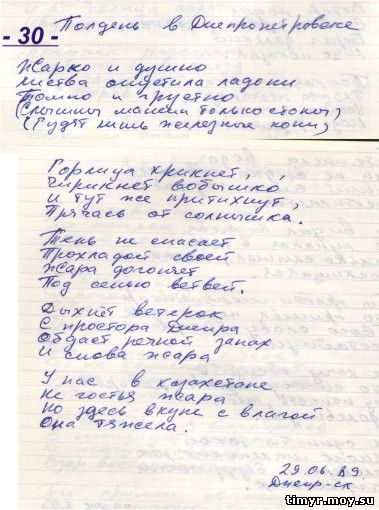 Полдень в Днепропетровске
- 30 -
Жарко и душно
листва опустила ладони
Томно и грустно
(Слышны машин только стоны)
(Гудят лишь железные кони)
Горлица крикнет,
Чирикнет вобышко
и тут же притихнут,
Прячась от солнышка.
Тень не спасает
Прохладой своей
Жара догоняет
Под сенью ветвей.
Дыхнёт ветерок
С простора Днепра
Обдаст речной запах
И снова жара
У нас в Казахстане
Не гостья жара
Но здесь вкупе с влагой
Она тяжела.
29.06.89.
Днепр-ск
timyr.moy.su